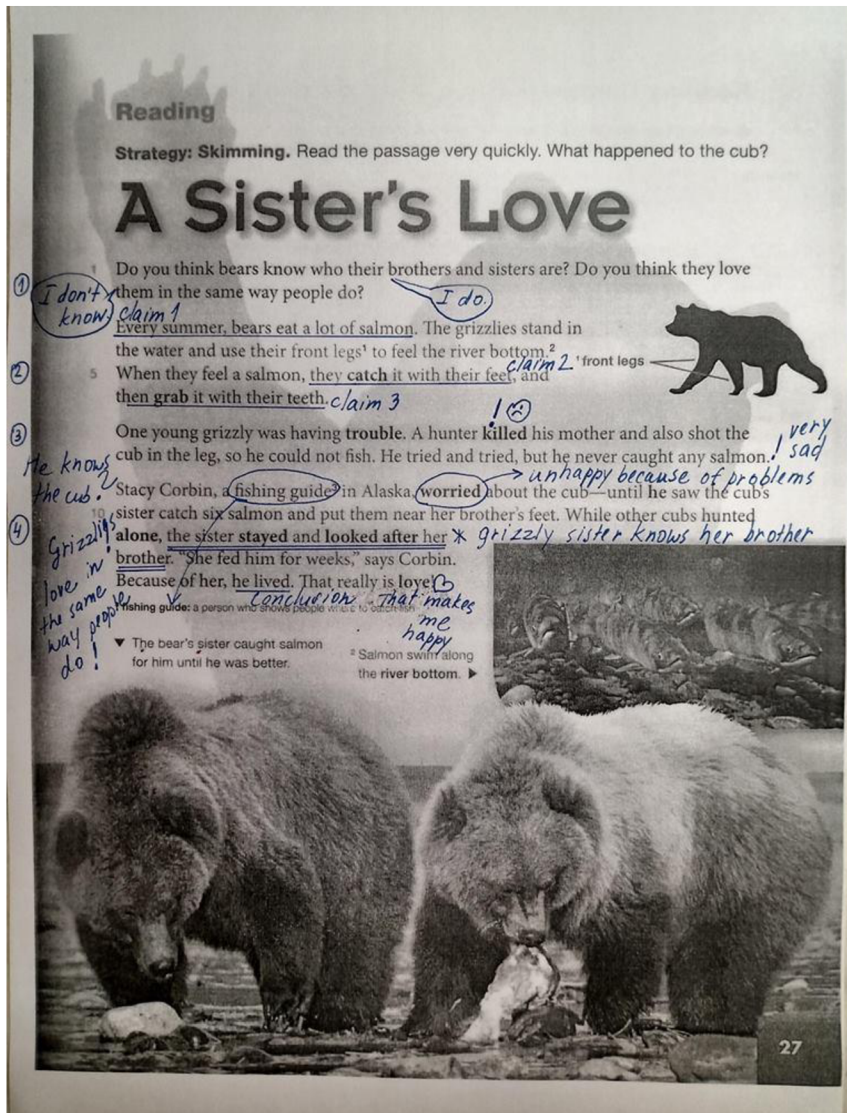 Reading
Strategy: Skimming. Read the passage very quickly. What happened to the cub?
A Sister's Love
1 Do you think bears know who their brothers and sisters are? Do you think they love
① I don't them in the same way people do? I do.
know. claim 1
Every summer, bears eat a lot of salmon. The grizzlies stand in
the water and use their front legs¹ to feel the river bottom.²
claim 2 ¹ front legs
② 5 When they feel a salmon, they catch it with their feet, and
then grab it with their teeth. claim 3
! ☹
③ One young grizzly was having trouble. A hunter killed his mother and also shot the ! very
cub in the leg, so he could not fish. He tried and tried, but he never caught any salmon. sad
He knows → unhappy because of problems
the cub? Stacy Corbin, a fishing guide³ in Alaska, worried about the cub—until he saw the cub's
10 sister catch six salmon and put them near her brother's feet. While other cubs hunted
④ alone, the sister stayed and looked after her * grizzly sister knows her brother
brother. "She fed him for weeks," says Corbin.
Because of her, he lived. That really is love! ♡
conclusion That makes
me
happy
Grizzlies
love in
the same
way people
do!
fishing guide: a person who shows people where to catch fish
▼ The bear's sister caught salmon
for him until he was better.
² Salmon swim along
the river bottom. ▶
27